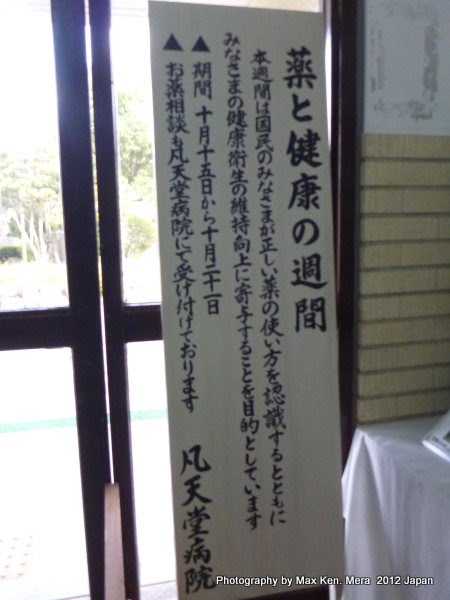 薬と健康の週間
本週間は国民のみなさまが正しい薬の使い方を認識するとともに
みなさまの健康衛生の維持向上に寄与することを目的としています
▲期間 十月十五日から十月二十一日
▲お薬相談も凡天堂病院にて受け付けております
凡天堂病院
Photography by Max Ken. Mera 2012 Japan